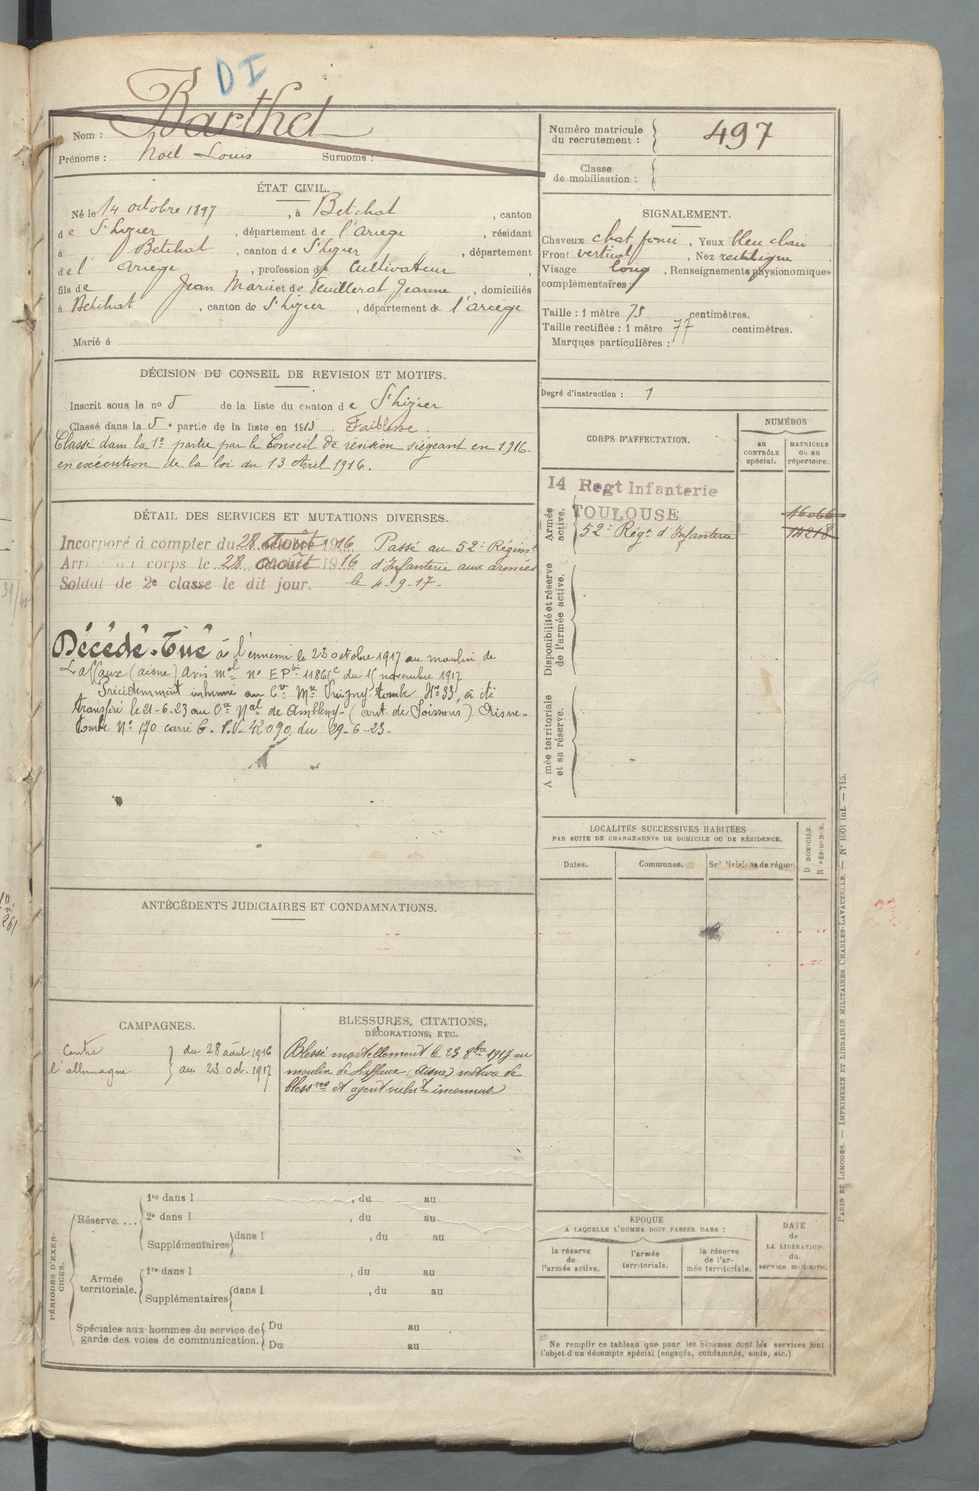 DI
Nom : Barthet
Prénoms : Noël Louis Surnoms :
Numéro matricule du recrutement : 497
Classe de mobilisation :
ÉTAT CIVIL.
Né le 14 octobre 1897, à Betchat, canton
de St Lizier, département de l'Ariège, résidant
à Betchat, canton de St Lizier, département
de l' Ariège, profession de Cultivateur,
fils de Jean Marie et de Feuillerat Jeanne, domiciliés
à Betchat, canton de St Lizier, département de l'ariège
Marié à
SIGNALEMENT.
Cheveux chat foncé, Yeux bleu clair
Front vertical, Nez rectiligne
Visage long, Renseignements physionomiques
complémentaires
Taille : 1 mètre 75 centimètres.
Taille rectifiée : 1 mètre 77 centimètres.
Marques particulières :
Degré d'instruction : 1
DÉCISION DU CONSEIL DE REVISION ET MOTIFS.
Inscrit sous le no 5 de la liste du canton de St Lizier
Classé dans la 5e partie de la liste en 1915 Faiblesse.
Classé dans la 1e partie par le Conseil de révision siégeant en 1916.
en exécution de la loi du 13 Avril 1916.
CORPS D'AFFECTATION.
NUMÉROS
AU CONTRÔLE spécial.
MATRICULE OU AU répertoire.
Armée active.
14 Regt Infanterie
TOULOUSE 16066
52e Régt d'Infanterie 14218
Disponibilité et réserve de l'armée active.
Armée territoriale et sa réserve.
DÉTAIL DES SERVICES ET MUTATIONS DIVERSES.
Incorporé à compter du 28 août 1916 Passé au 52e Régimt
Arr au corps le 28 août 1916 d'Infanterie aux armées
Soldat de 2e classe le dit jour. le 4-9-17-
Décédé-Tué à l'ennemi le 23 octobre 1917 au moulin de
Laffaux (aisne) Avis mel no EPbi 11861c du 15 novembre 1917
Précédemment inhumé au Cre Mre tombe No 33, a été
transféré le 21-6-23 au Cre Nal de Ambleny- (arrt de Soissons). Aisne-
tombe No 170 carré C. P.V. 42090 du 29-6-23-
LOCALITÉS SUCCESSIVES HABITÉES
PAR SUITE DE CHANGEMENTS DE DOMICILE OU DE RÉSIDENCE.
Dates. Communes. Subdivisions de région.
D. DOMICILE.
R. RÉSIDENCE.
ANTÉCÉDENTS JUDICIAIRES ET CONDAMNATIONS.
CAMPAGNES.
Contre } du 28 août 1916
l'allemagne } au 23 oct. 1917
BLESSURES, CITATIONS,
DÉCORATIONS, ETC.
Blessé mortellement le 23 8bre 1917 au
moulin de Laffaux (Aisne) nature de
bless res et agent vulnt inconnus
PÉRIODES D'EXERCICES.
Réserve....
1re dans l , du au
2e dans l , du au
Supplémentaires dans l , du au
Armée territoriale.
1re dans l , du au
Supplémentaires dans l , du au
Spéciales aux hommes du service de garde des voies de communication.
Du au
Du au
ÉPOQUE
A LAQUELLE L'HOMME DOIT PASSER DANS :
la réserve de l'armée active.
l'armée territoriale.
la réserve de l'armée territoriale.
DATE de LA LIBÉRATION du service militaire.
Ne remplir ce tableau que pour les hommes dont les services font
l'objet d'un décompte spécial (engagés, condamnés, omis, etc.)
PARIS ET LIMOGES. — IMPRIMERIE ET LIBRAIRIE MILITAIRES CHARLES-LAVAUZELLE. — No 1001 int. — 715.